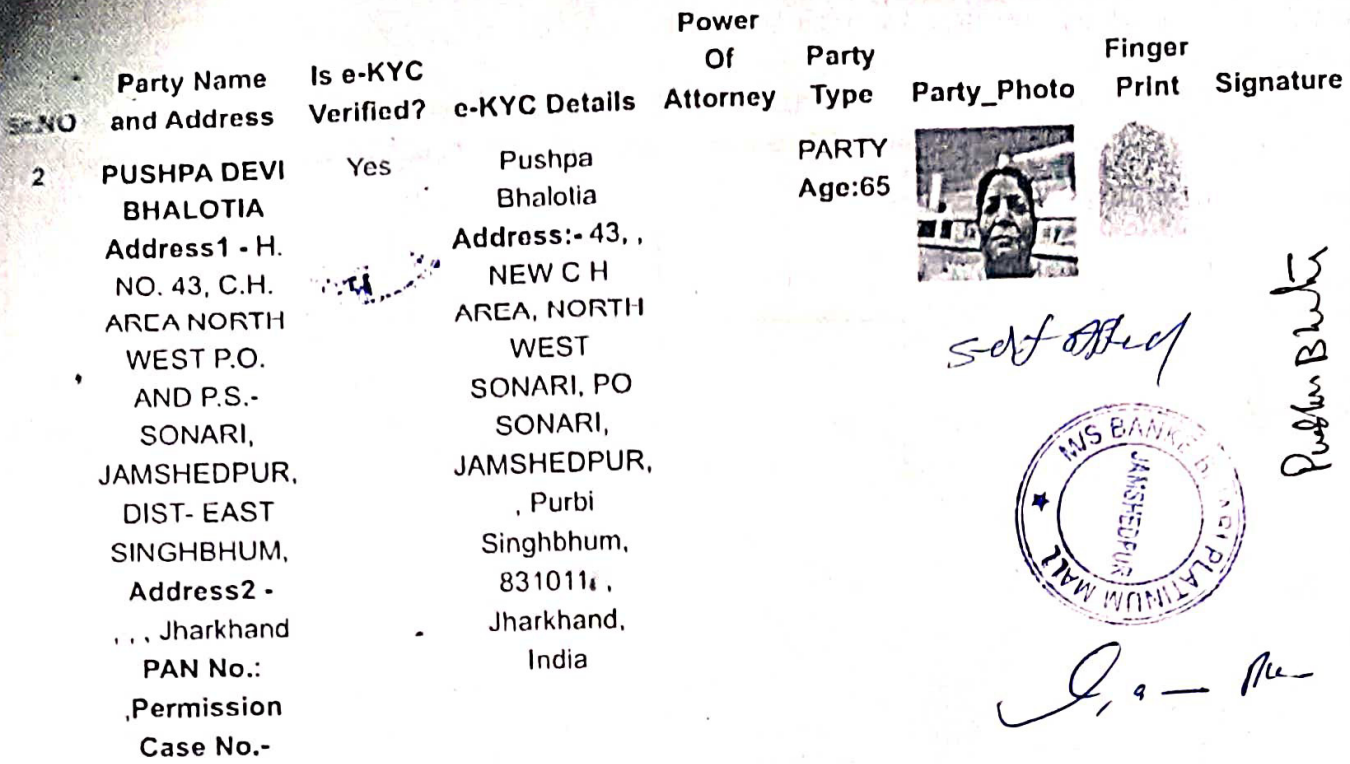 Sr.NO Party Name and Address Is e-KYC Verified? e-KYC Details Power Of Attorney Party Type Party_Photo Finger Print Signature
2
PUSHPA DEVI
BHALOTIA
Address1 - H.
NO. 43, C.H.
AREA NORTH
WEST P.O.
AND P.S.-
SONARI,
JAMSHEDPUR,
DIST- EAST
SINGHBHUM,
Address2 -
, , , Jharkhand
PAN No.:
,Permission
Case No.-
Yes
Pushpa
Bhalotia
Address:- 43, ,
NEW C H
AREA, NORTH
WEST
SONARI, PO
SONARI,
JAMSHEDPUR,
, Purbi
Singhbhum,
831011, ,
Jharkhand,
India
PARTY
Age:65
M/S BANKE PLATINUM MALL
JAMSHEDPUR